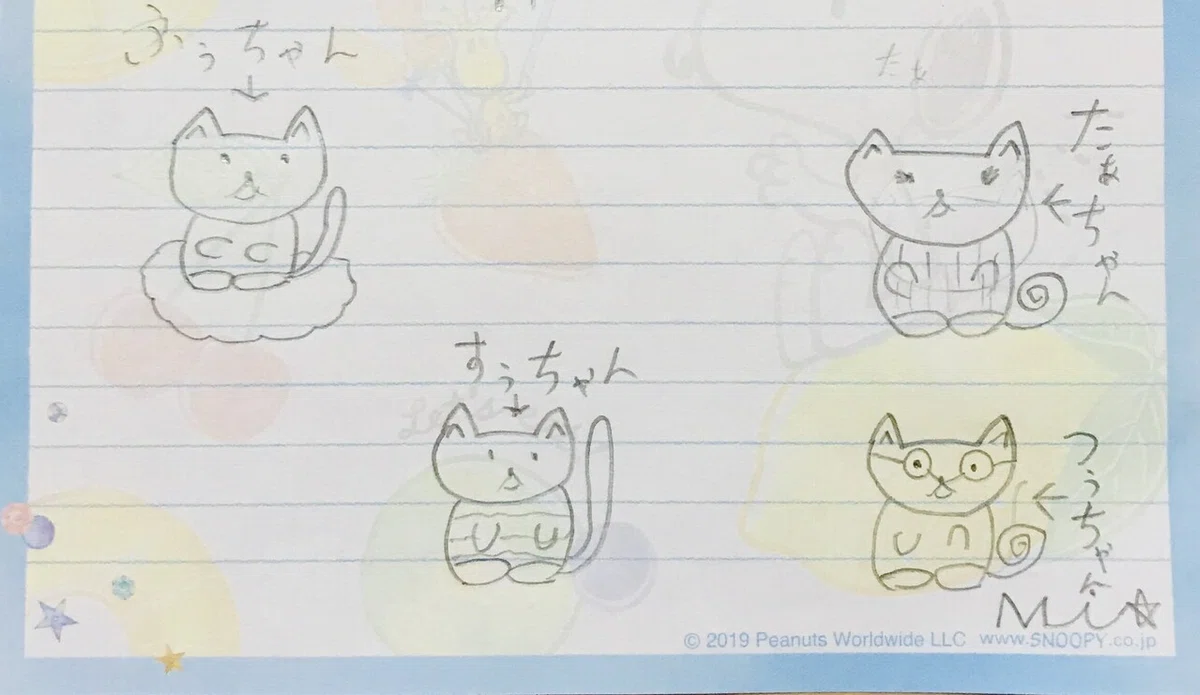 ふぅちゃん
たぁ
たぁちゃん
すぅちゃん
Let's
つぅちゃん
Mi☆
© 2019 Peanuts Worldwide LLC www.SNOOPY.co.jp